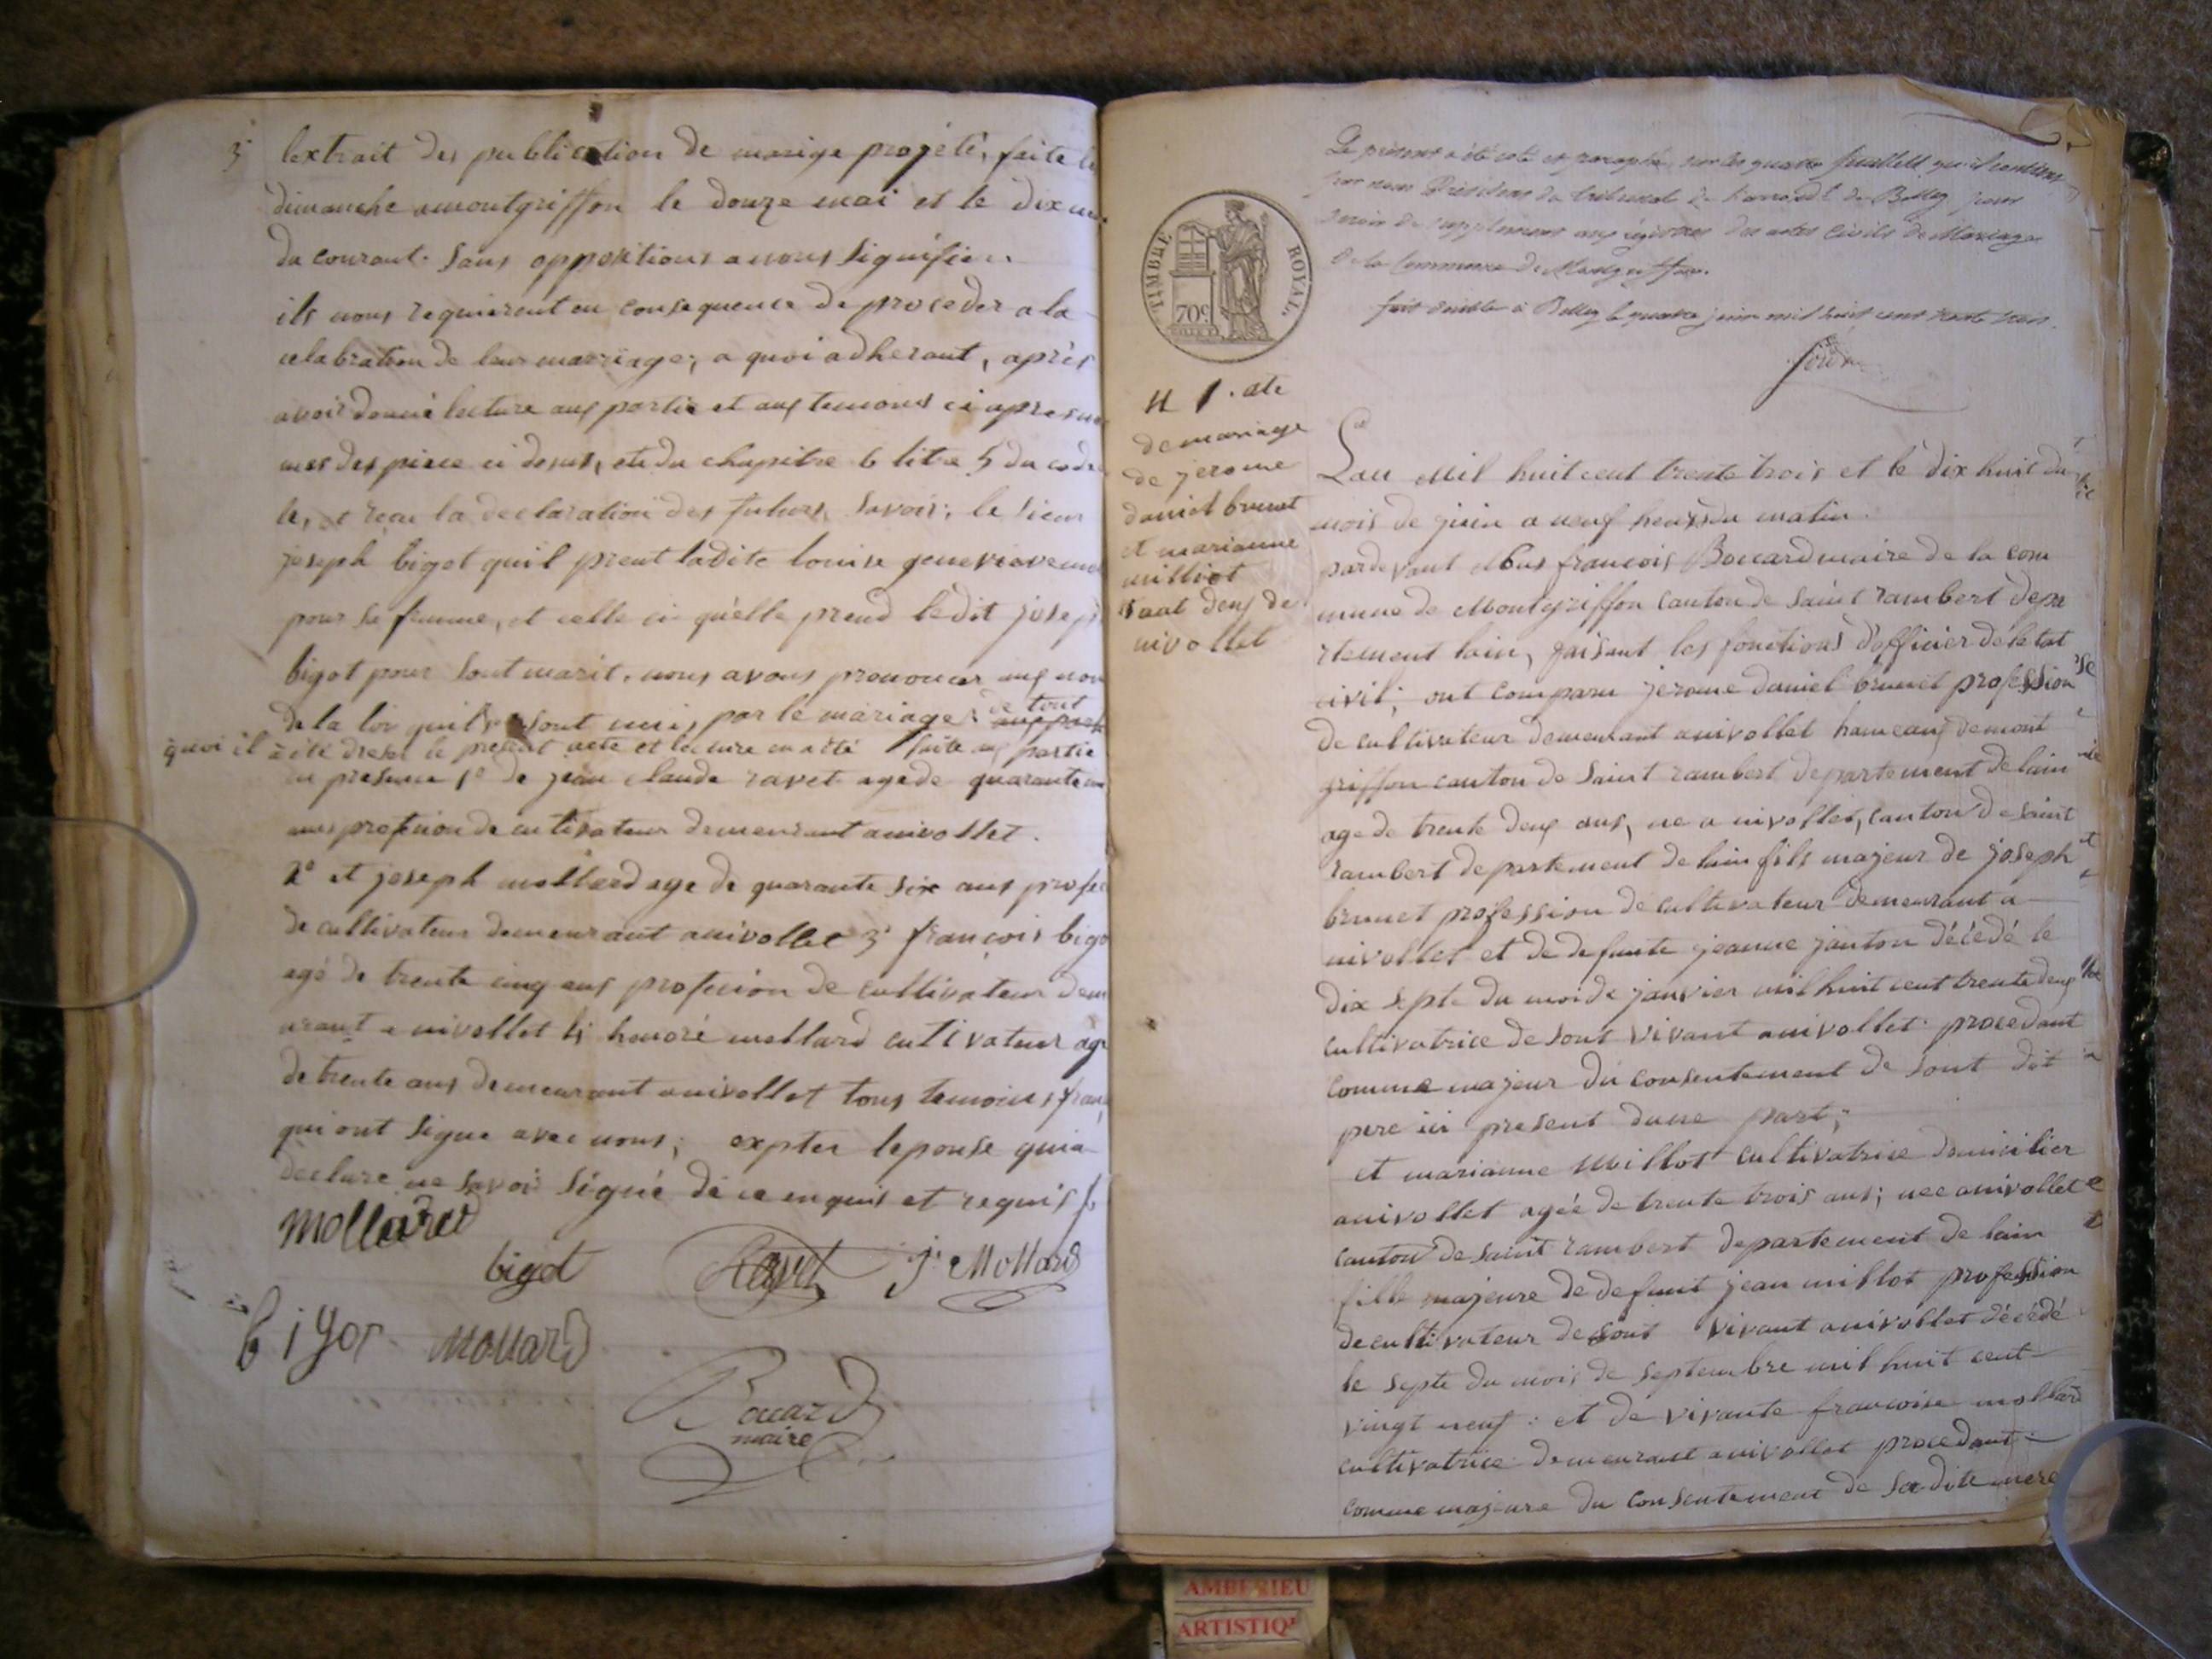 3° lextrait des publication de marige projeté, faite le
dimanche amontgriffon le douze mai et le dix
du courant. sans oppositions a nous signifiéе.
ils nous requierent en consequence de proceder a la
celabration de leur marriage; a quoi adherant, après
avoir donné lecture aux partie et aux temoins ci apres
mes des piece ci desus, et du chapitre 6 titre 5 du code
le, et reçu la declaration des futurs, savoir; le sieur
joseph bigot quil prent ladite louise genevieve
pour sa femme, et celle ci qu'elle prend ledit josep
bigot pour sont marit. nous avons prononcer aux nom
de la loi quil sont unis par le mariage. de tout
quoi il a été dresé le present acte et lecture en a été faite aux partie
en presence 1° de jean claude ravet age de quarante
ans profecion de cultivateur demeurant anivollet.
2° et joseph mollard age de quarante six ans profec
de cultivateur demeurant anivollet 3° françois bigo
agé de trente cinq ans profecion de cultivateur dem
urant a nivollet 4 honoré mollard cultivateur age
de trente ans demeurant anivollet tous temoins fran
qui ont signe avec nous; expter lepouse quia
declare ne savoir signé de ce enquis et requis
Mollard
bigot Ravet j. Mollard
bigot Mollard
Boucard
maire
Le présent a été coté et paraphé sur les quatre feuillets qu'il contient
par nous Président du tribunal de l'arrond.t de Belley pour
servir de supplément aux régistres des actes civils de Mariage
de la Commune de Montgriffon.
fait double à Belley le quatre juin mil huit cent trente trois.
TIMBRE ROYAL
70c
4 . ate
de mariage
de jerome
daniel brunet
et marianne
milliot
tout deux de
nivollet
Lan Mil huit cent trente trois et le dix huit du
mois de juin a neuf heurs du matin.
pardevant Nous françois Boucard maire de la com
mune de Montgriffon canton de saint rambert depa
rtement lain, faisant les fonctions d'officier de letat
civil; ont comparu jerome daniel brunet profession
de cultivateur demeurant anivollet hameaux de mont
griffon canton de saint rambert departement de lain
age de trente deux ans, ne a nivollet, canton de saint
rambert departement de lain fils majeur de joseph
brunet profession de cultivateur demeurant a
nivollet et de defunte jeanne janton décédé le
dix septe du moi de janvier mil huit cent trente deux
cultivatrice de sont vivant anivollet. procedant
comme majeur du consentement de sont dit
pere ici present dune part;
et marianne Millot cultivatrice domicilier
anivollet agée de trente trois ans; nee anivollet
canton de saint rambert departement de lain
fille majeure de defunt jean millot profession
de cultivateur de sont vivant anivollet décédé
le septe du mois de septembre mil huit cent
vingt neuf: et de vivante francoise mollard
cultivatrice demeurant anivollet procedant
comme majeure du consentement de sa dite mere
AMBERIEU
ARTISTIQ